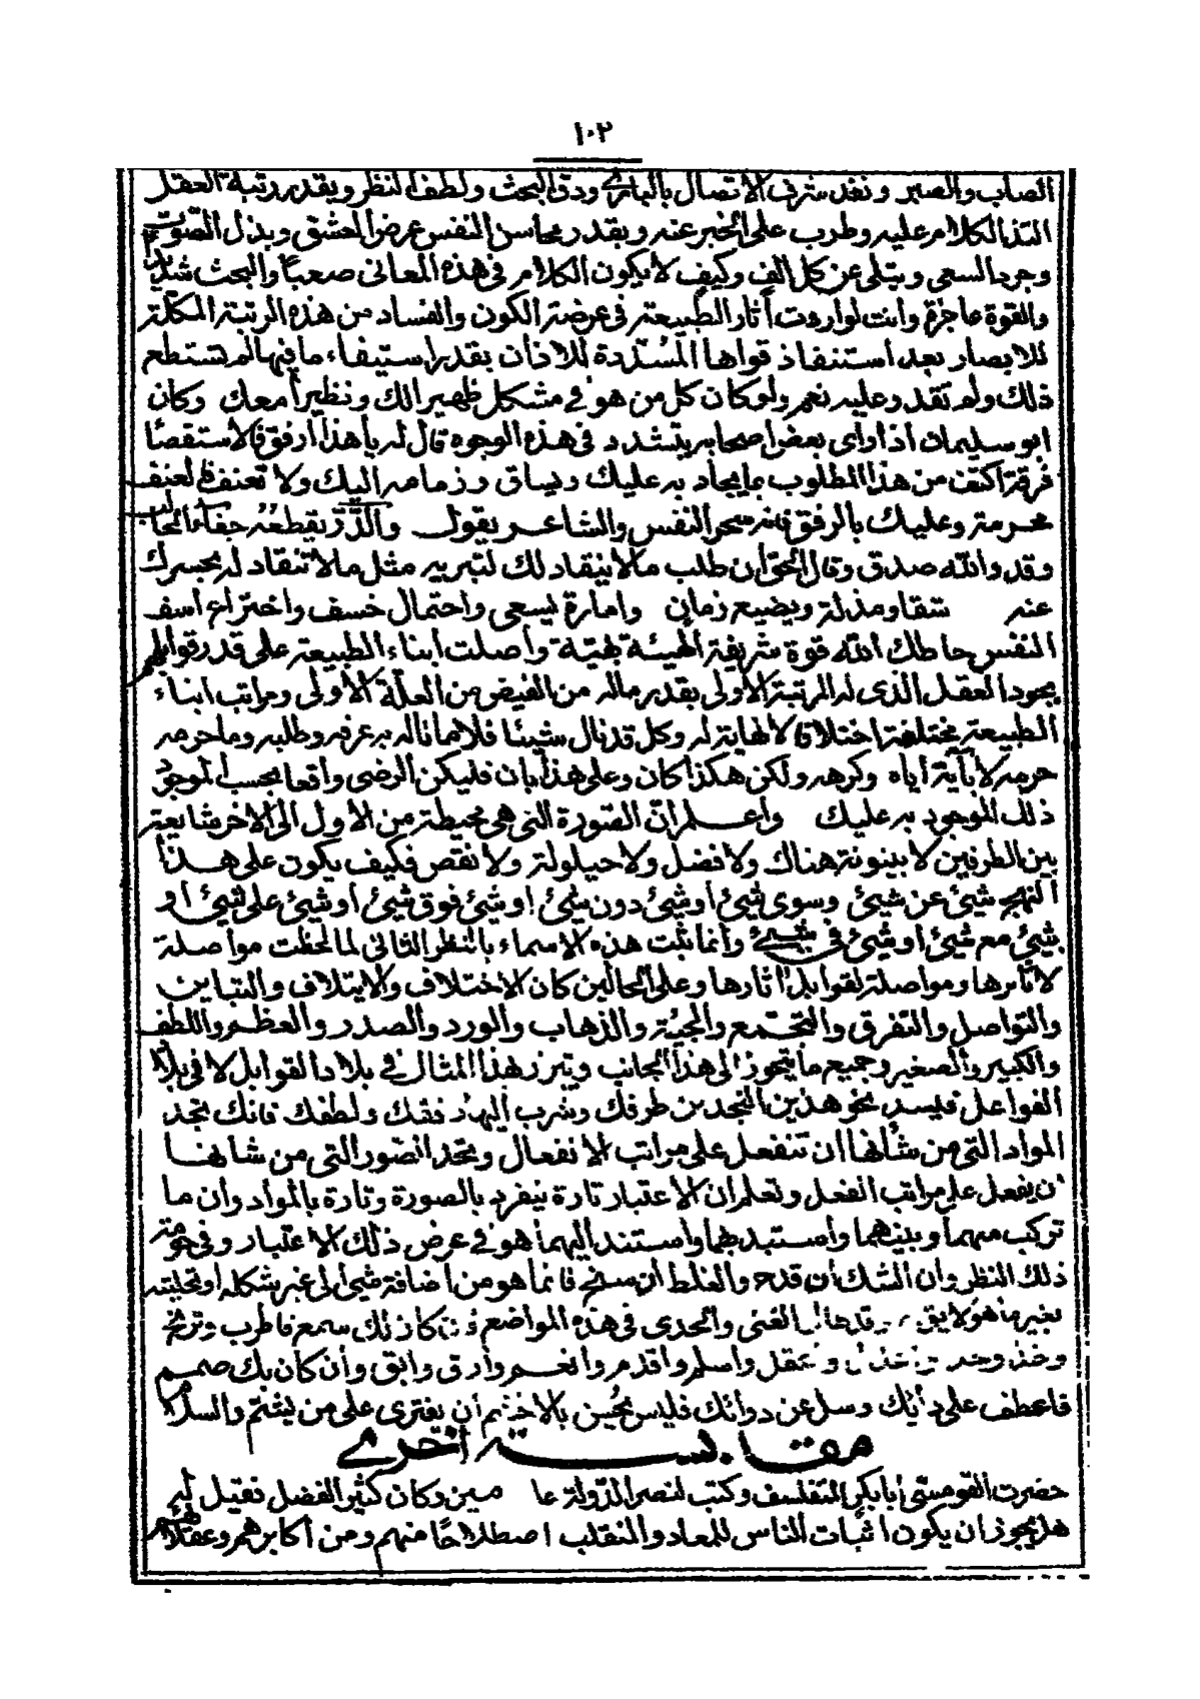 ١٠٢
الصاب والصبر وبقدر شرف الاتصال بالباري ودق البحث ولطف النظر وبقدر رتبة العقل
التذ الكلام عليه وطرب على الخبر عنه وبقدر محاسن النفس عرض العشق وبذل الصوت
وجرد السعي وبتلى عن كل الف وكيف لا يكون الكلام في هذه المعاني صعبا والبحث شديد
والقوة عاجزة وانت لو اردت آثار الطبيعة في عرصة الكون والفساد من هذه الرتبة المكلة
للابصار بعد استنفاذ قواها المسددة للاذان بقدر استيفاء ما فيها لم تستطع
ذلك ولم تقدر عليه نعم ولو كان كل من هو في مشكل ظهيرا لك ونظيرا معك وكان
ابو سليمان اذا رأى بعض اصحابه يتشدد في هذه الوجوه قال له يا هذا ارفق فالاستقصا
فرقة اكتف من هذا المطلوب بما يجاد به عليك ويساق زمامه اليك ولا تعنف فالعنف
محرمة وعليك بالرفق فانه سحر النفس والشاعر يقول والدر يقطعه جفاء الحالب
وقد والله صدق وقال الحق ان طلب مالا ينقاد لك لتبريه مثل مالا تنقاد له بحسرك
عنه شقا ومذلة ويضيع زمان وامارة ليسعى واحتمال خسف واختراع اسف
النفس حاطك الله قوة شريفة الهيئة بهية واصلت ابناء الطبيعة على قدر قوابلهم
بجود العقل الذي له المرتبة الاولى بقدر ماله من الفيض من العلة الاولى ومراتب ابناء
الطبيعة مختلفة اختلافا لا نهاية له وكل قد نال شيئا فلا مما ناله به عرفه وطلبه وما حرمه
حرمه لا بآية اياه وكرهه ولكن هكذا كان وعلى هذا بان فليكن الرضى واقعا بحسب الموجود
ذلك الموجود به عليك واعلم ان الصورة التي هي محيطة من الاول الى الآخر شايعة
بين الطرفين لا بينونة هناك ولا فضل ولا حيلولة ولا نقص فكيف يكون على هذا
النهج شيئ عن شيئ وسوى شيئ او شيئ دون شيئ او شيئ فوق شيئ او شيئ على شيئ او
شيئ مع شيئ او شيئ في شيئ وانما ثبت هذه الاسماء بالنظر الثاني لما لحظت مواصلة
لآثارها ومواصلة لقوابل اثارها وعلى الحالين كان الاختلاف والايتلاف والتباين
والتواصل والتفرق والتجمع والمجيئة والذهاب والورد والصدر والعظم واللطف
والكبير والصغير وجميع ما يتحوز الى هذا الجانب ويتبرز بهذا المثال في بلاد القوابل لا في بلاد
الفواعل فليسر نحو هذين النجدين طرفك وشرب اليهما ذقنك ولطفك فانك تجد
المواد التي من شأنها ان تنفعل على مراتب الانفعال وتجد الصور التي من شانها
ان يفعل على مراتب الفعل وتعلم ان الاعتبار تارة ينفرد بالصورة وتارة بالمواد وان ما
تركب منهما وبينهما واستبد بهما واستند اليهما هو في عرض ذلك الاعتبار وفي حومة
ذلك النظر وان الشك ان قدح والغلط ان سنح فانما هو من اضافة شيئ الى غير شكله او تحليته
بغير ما هو لايق به وقدها الغنى والجدى في هذه المواضع فان كان لك سمع فاطرب وترنح
وخذ وجد واعقل واسلم واقدم وانعم وارق وابق وان كان بك صمم
فاعطف على دأيك وسل عن دوائك فليس يحسن بالاخشم ان يفترى على من يشتم والسلام
مقابسة اخرى
حضرت القومسي ابا بكر المتفلسف وكتب لنصر الدولة عا مين وكان كثير الفضل فقيل له
هل يجوز ان يكون اثبات الناس للمعاد والمنقلب اصطلاحا منهم ومن اكابرهم وعقلائهم